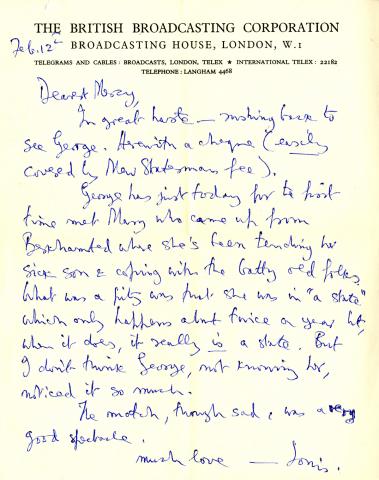 THE BRITISH BROADCASTING CORPORATION
Feb. 12th
BROADCASTING HOUSE, LONDON, W.1
TELEGRAMS AND CABLES: BROADCASTS, LONDON, TELEX ★ INTERNATIONAL TELEX: 22182
TELEPHONE: LANGHAM 4468
Dearest Mercy,
In great haste — rushing back to
see George. Herewith a cheque (easily
covered by New Statesman fee).
George has just today for the first
time met Mary who came up from
Berkhamsted where she's been tending her
sick son & coping with the batty old folks.
What was a pity was that she was in "a state"
which only happens about twice a year but,
when it does, it really is a state. But
I don't think George, not knowing her,
noticed it so much.
The match, though sad, was a very
good spectacle.
much love — Louis.